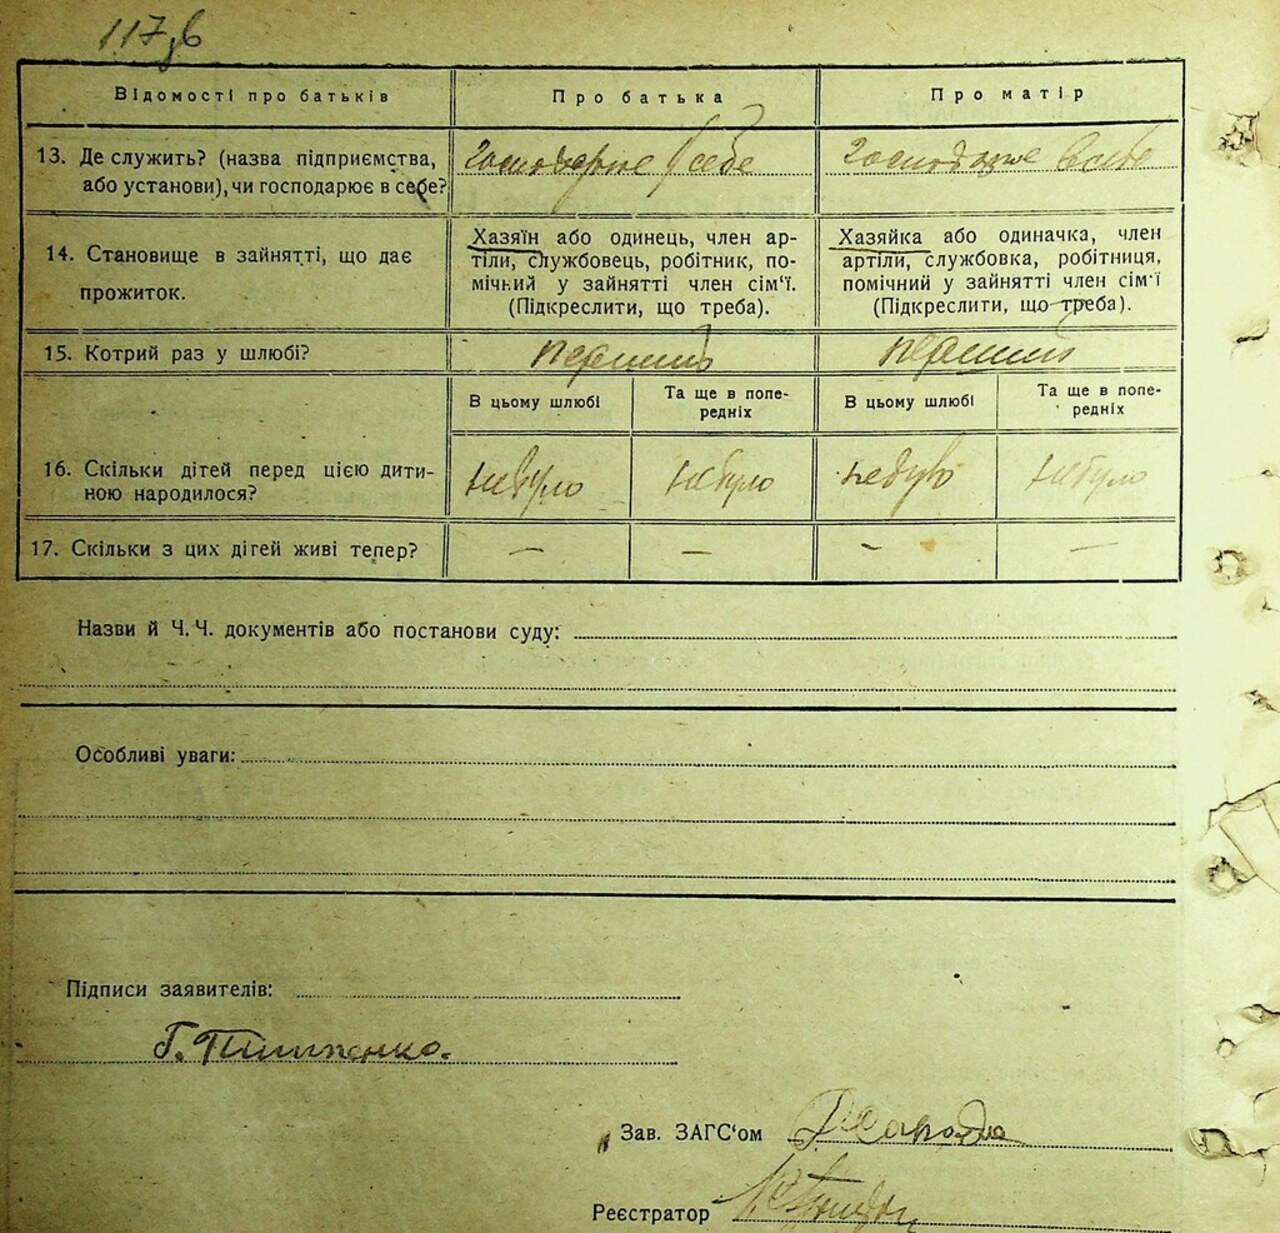 117,в
Відомості про батьків
Про батька
Про матір
13. Де служить? (назва підприємства,
або установи), чи господарює в себе?
господарює в себе
господарює в себе
14. Становище в зайнятті, що дає
прожиток.
Хазяїн або одинець, член ар-
тіли, службовець, робітник, по-
мічний у зайнятті член сім'ї.
(Підкреслити, що треба).
Хазяйка або одиначка, член
артіли, службовка, робітниця,
помічний у зайнятті член сім'ї
(Підкреслити, що треба).
15. Котрий раз у шлюбі?
перший
перший
В цьому шлюбі
Та ще в попе-
редніх
В цьому шлюбі
Та ще в попе-
редніх
16. Скільки дітей перед цією дити-
ною народилося?
небуло
небуло
небуло
небуло
17. Скільки з цих дітей живі тепер?
—
—
—
—
Назви й Ч. Ч. документів або постанови суду:
Особливі уваги:
Підписи заявителів:
Зав. ЗАГС'ом
Реєстратор